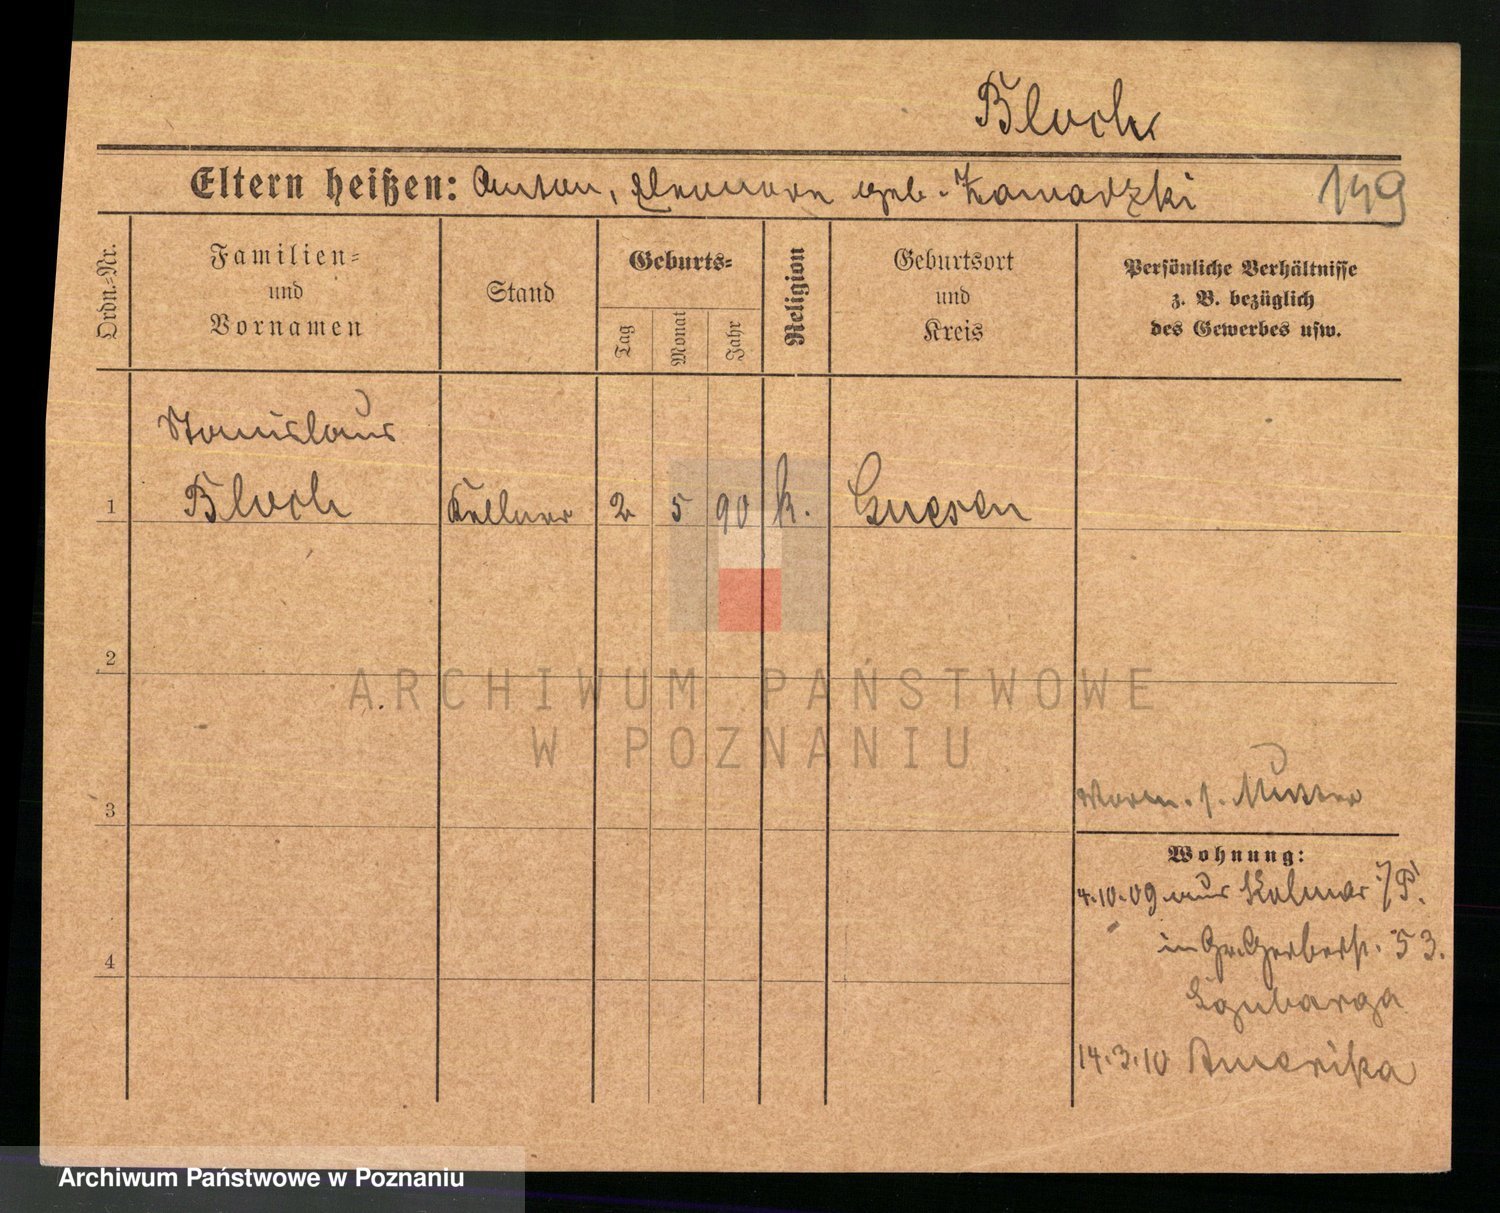 Bloch
Eltern heißen: Anton, Eleonore geb. Zawadzki
149
Ordn.-Nr.
Familien-
und
Vornamen
Stand
Geburts-
Tag
Monat
Jahr
Religion
Geburtsort
und
Kreis
Persönliche Verhältnisse
z. B. bezüglich
des Gewerbes usw.
Stanislaus
1 Bloch Kellner 2 5 90 k. Gnesen
2
ARCHIWUM PAŃSTWOWE
W POZNANIU
3
Mutter
Wohnung:
4.10.09 aus Kolmar i/P.
in Gr. Gerberst. 53.
4
14.3.10 Amerika
Archiwum Państwowe w Poznaniu